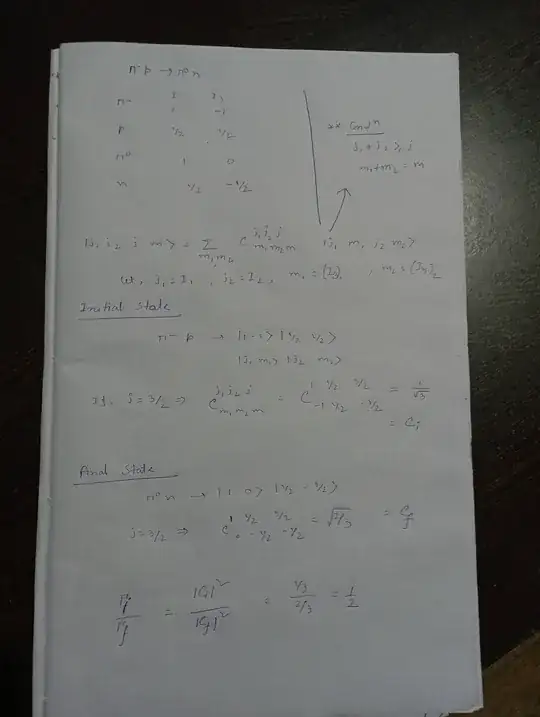 π⁻ p → π⁰ n
I I₃
π⁻ 1 -1
p 1/2 1/2
π⁰ 1 0
n 1/2 -1/2
** Condⁿ
j₁ + j₂ ≥ j
m₁+m₂ = m
|j₁ j₂ j m> = Σ_{m₁ m₂} C^{j₁ j₂ j}_{m₁ m₂ m} |j₁ m₁ j₂ m₂>
Let, j₁ = I₁ , j₂ = I₂ , m₁ = (I₃)₁ , m₂ = (I₃)₂
Initial State
π⁻ p → |1 -1> |1/2 1/2>
|j₁ m₁> |j₂ m₂>
If, j = 3/2 ⇒ C^{j₁ j₂ j}_{m₁ m₂ m} = C^{1 1/2 3/2}_{-1 1/2 -1/2} = 1/√3
= Cᵢ
Final State
π⁰ n → |1 0> |1/2 -1/2>
j = 3/2 ⇒ C^{1 1/2 3/2}_{0 -1/2 -1/2} = √2/3 = C_f
Γᵢ/Γ_f = |Cᵢ|²/|C_f|² = (1/3)/(2/3) = 1/2